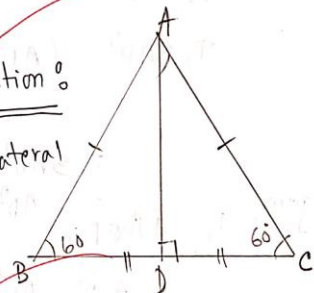 A
tion :
ateral
60°
60°
B
D
C